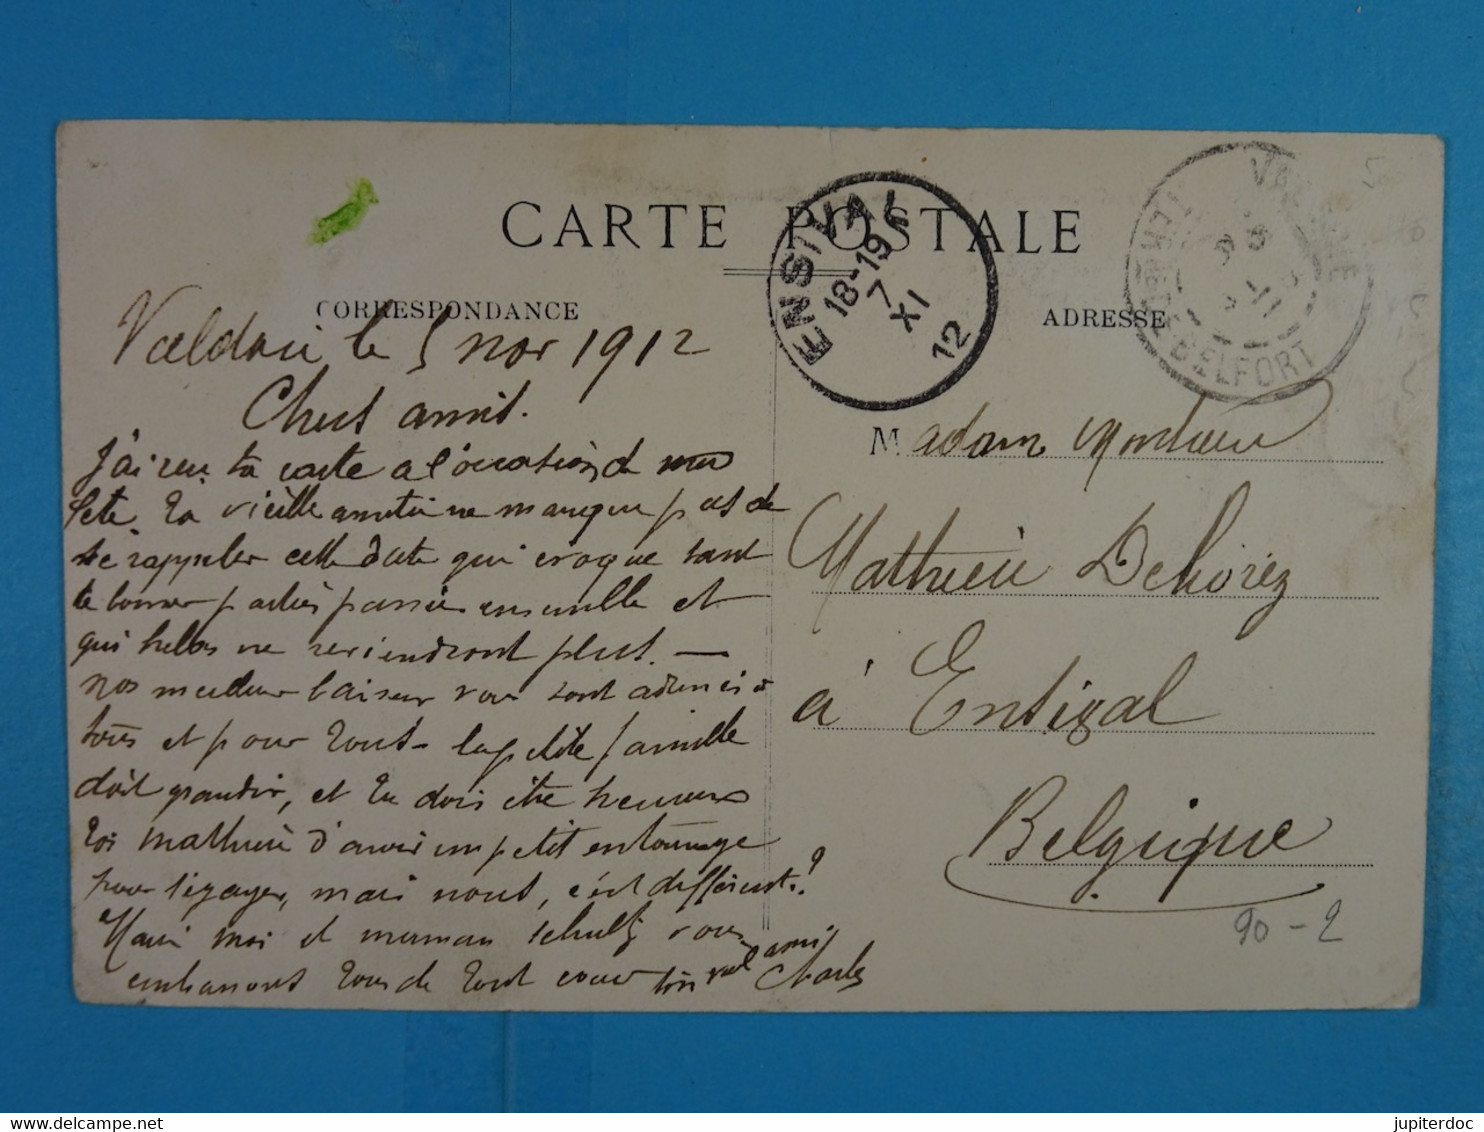 CARTE POSTALE
CORRESPONDANCE
ADRESSE
ENSIVAL
18-19
7
XI
12
BELFORT
Valdoie le 5 nov 1912
Chers amis.
J'ai reçu ta carte a l'occasion de ma
fete. Ta vieille amitié ne manque pas de
se rappeler cette date qui evoque tant
de bonnes parties passées ensemble et
qui helas ne reviendront plus. —
nos meilleurs baisers vous sont
tous et pour tout - la petite famille
doit grandir, et tu dois être heureux
toi mathieu d'avoir un petit entourage
pour t'egayer, mais nous, c'est différent.?
moi et maman vous
embrassons tous de tout coeur ton vieil ami
Charles
Madame Monsieur
Mathieu Dehorez
à Ensival
Belgique
90-2
jupiterdoc